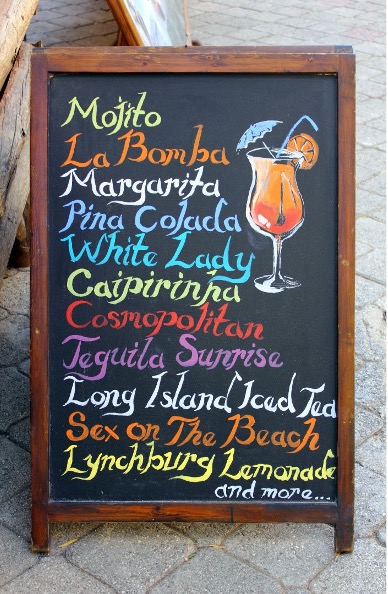 Mojito
La Bomba
Margarita
Pina Colada
White Lady
Caipirinha
Cosmopolitan
Tequila Sunrise
Long Island Iced Tea
Sex on The Beach
Lynchburg Lemonade
and more...